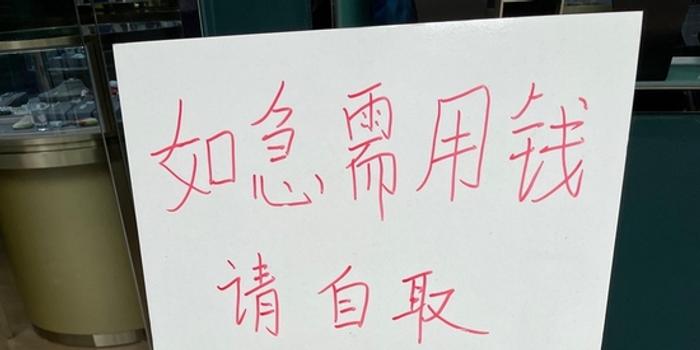 如急需用钱
请自取